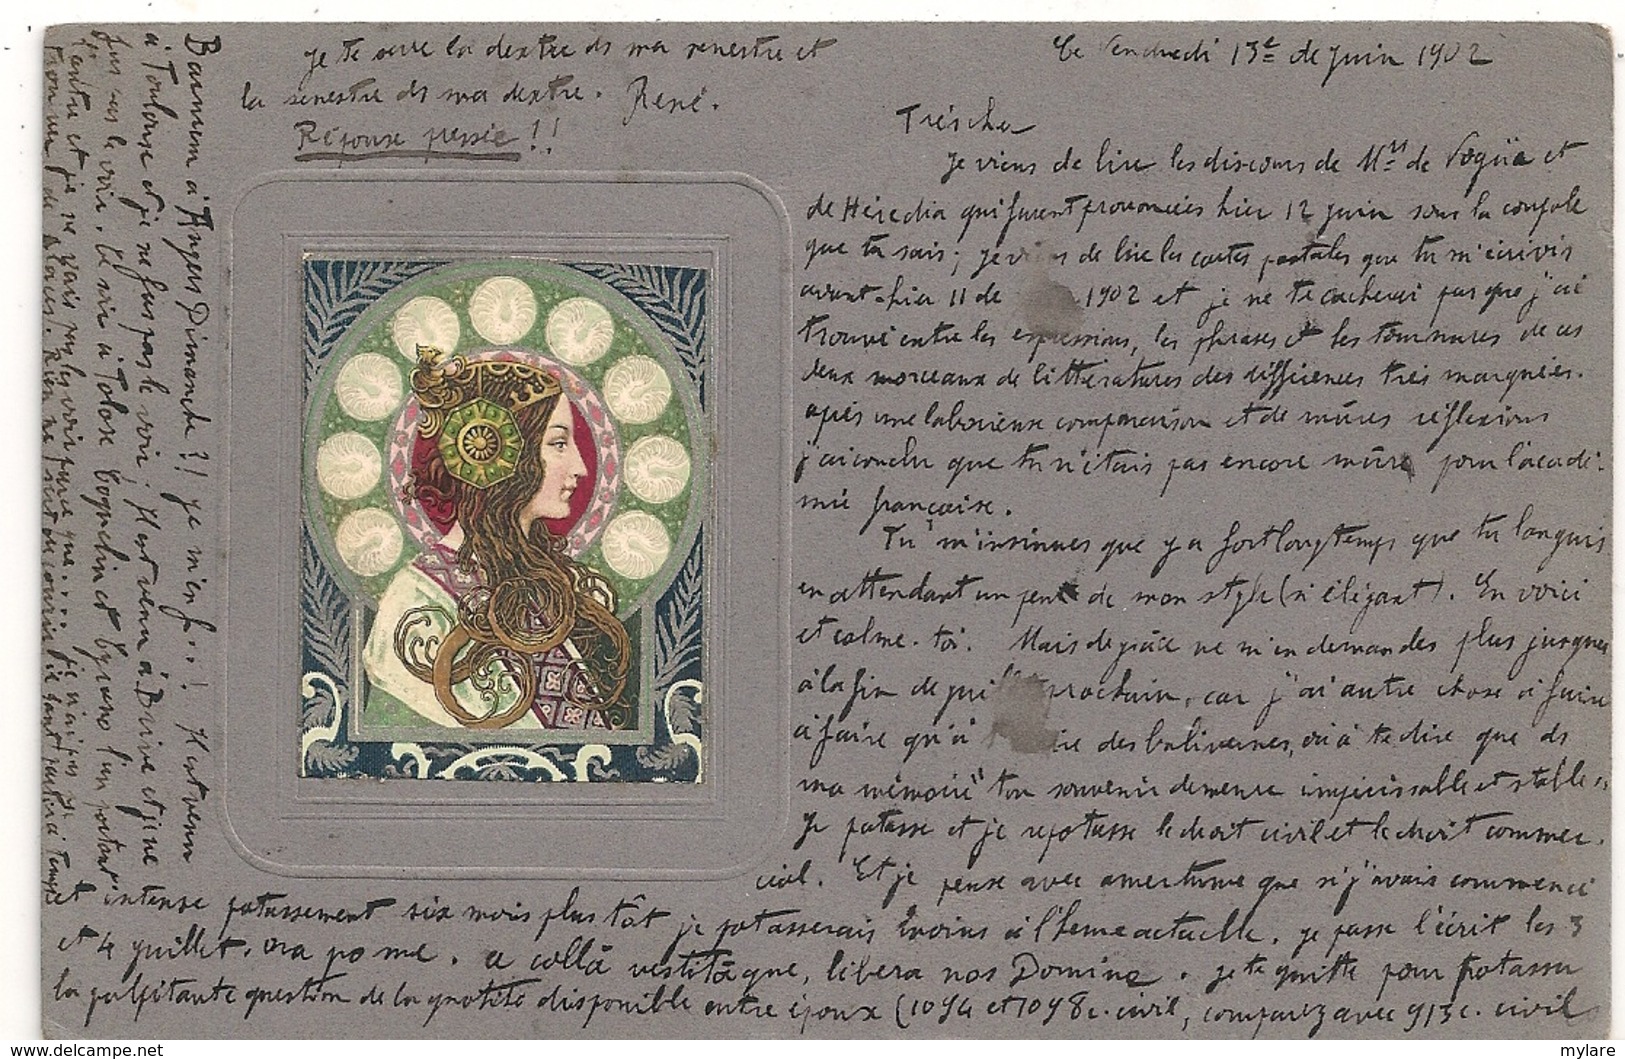 Ce Vendredi 13e de Juin 1902
Je te serre la dextre ds ma senestre et
la senestre ds ma dextre. René.
Réponse pressée !!
Très cher
Je viens de lire les discours de Mrs de Vogüe et
de Hérédia qui furent prononcées hier 12 juin sous la coupole
que tu sais; je viens de lire les cartes postales que tu m'écrivis
avant-hier 11 de 1902 et je ne te cacherai pas que j'ai
trouvé entre les expressions, les phrases et les tournures de ces
deux morceaux de littératures des différences très marquées.
après une laborieuse comparaison et de mûres réflexions
j'ai conclu que tu n'étais pas encore mûre pour l'acadé-
mie française.
Tu m'insinues que y a fort longtemps que tu languis
en attendant un peu de mon style (si élégant). En voici
et calme-toi. Mais de grâce ne m'en demandes plus jusques
à la fin de juillet prochain, car j'ai autre chose à faire
à faire qu'à des balivernes, ou à te dire que ds
ma mémoire ton souvenir demeure impérissable et stable.
Je potasse et je repotasse le droit civil et le droit commer-
cial. Et je pense avec amertume que si j'avais commencé
et intense potassement six mois plus tôt je potasserais moins à l'heure actuelle. Je passe l'écrit les 3
et 4 juillet. Ora pro me. libera nos Domine. Je te quitte pour potasser
la palpitante question de la quotité disponible entre époux (1094 et 1098 c. civil, comparez avec 913 c. civil
Barnum à Angers Dimanche ?! Je m'en f...! Il est venu
à Toulouse et je ne fus pas le voir; Il est venu à Brive et je ne
fus pas le voir. Ce soir à Tolose Coquelin et Cyrano l'un portant
l'autre et je ne vais pas les voir parce que.... je n'ai pas pu
trouver de places. Rien ne sert de courir il faut partir à temps
mylare